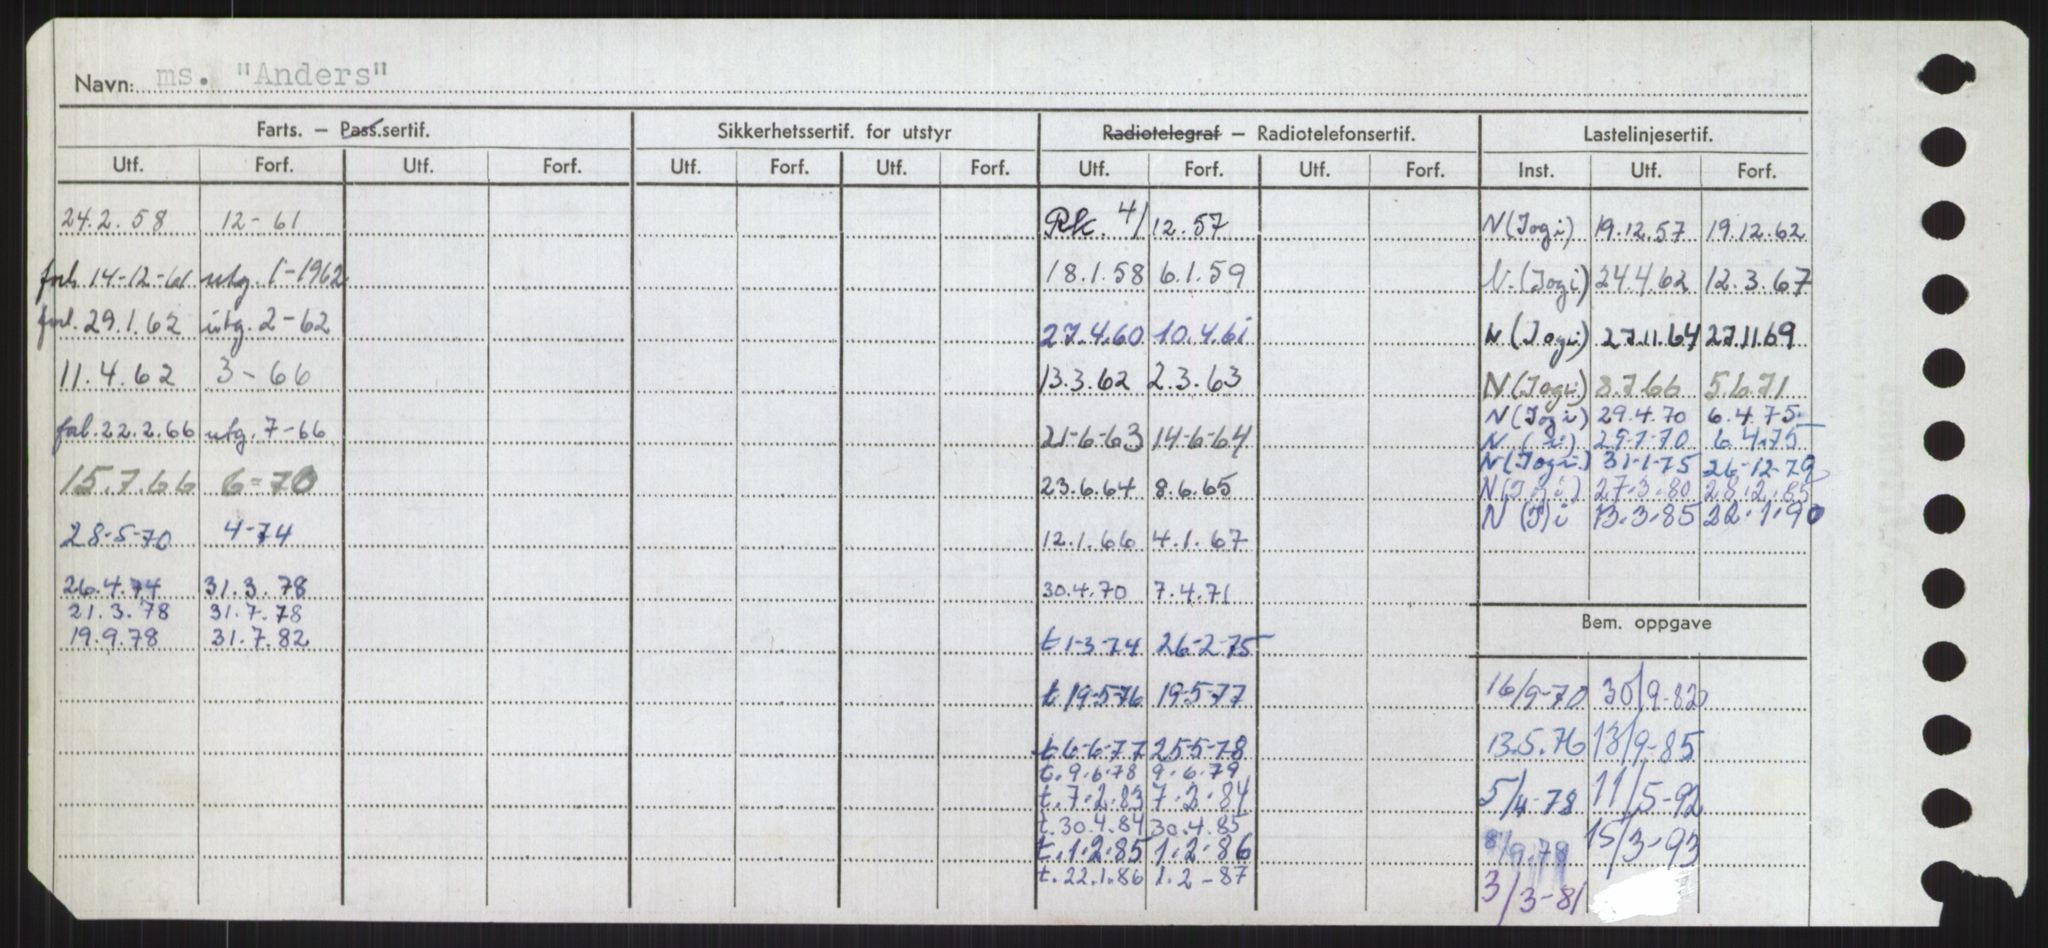 Navn: ms. "Anders"
Farts. – Pass.sertif. Sikkerhetssertif. for utstyr Radiotelegraf – Radiotelefonsertif. Lastelinjesertif.
Utf. Forf. Utf. Forf. Utf. Forf. Utf. Forf. Utf. Forf. Utf. Forf. Inst. Utf. Forf.
24.2.58 12-61 Rk. 4/12.57 N(Jogi) 19.12.57 19.12.62
forl. 14-12-61 utg. 1-1962 18.1.58 6.1.59 N.(Jogi) 24.4.62 12.3.67
forl. 29.1.62 utg. 2-62 27.4.60 10.4.61 N(Jogi) 27.11.64 27.11.69
11.4.62 3-66 13.3.62 2.3.63 N(Jogi) 8.7.66 5.6.71
N(Jogi) 29.4.70 6.4.75
forl. 22.2.66 utg. 7-66 21-6-63 14-6-64 N ( i) 29-7-70 6.4.75
N(Jogi) 31-1-75 26-12-79
15.7.66 6-70 23.6.64 8.6.65 N(Jogi) 27.3.80 28.2.85
N (J)i 13.3.85 22.1.90
28-5-70 4-74 12.1.66 4.1.67
26.4.74 31.3.78 30.4.70 7.4.71
21.3.78 31.7.78
Bem. oppgave
19.9.78 31.7.82 t 1-3-74 26-2-75
t 19-5-76 19-5-77 16/9-70 30/9-82
t.6-6-77 25-5-78 13.5.76 13/9-85
t.9.6.78 9.6.79
t.7.2.83 7.2.84 5/4-78 11/5-92
t.30.4.84 30.4.85
t.1.2.85 1.2.86 8/9.78 15/3-93
t.22.1.86 1.2-87
3/3-81